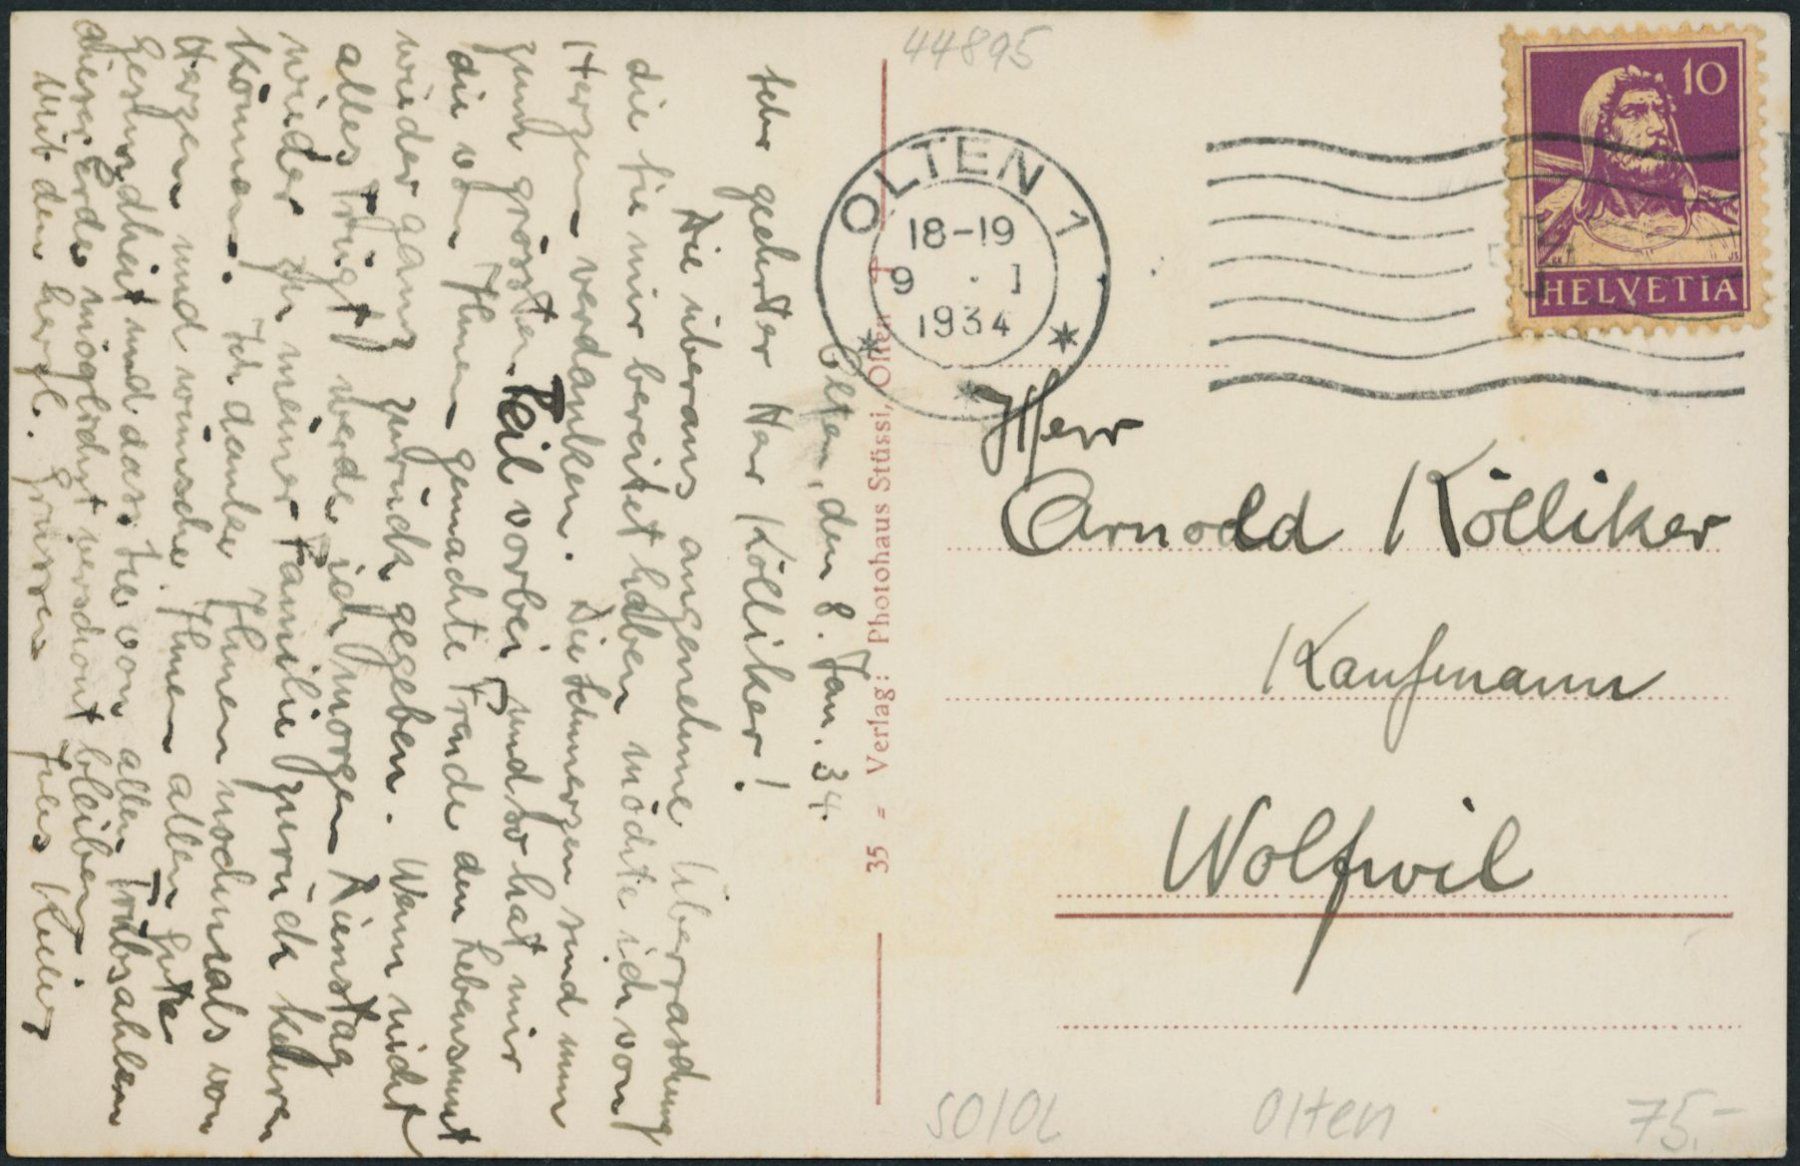 44895
10
HELVETIA
OLTEN 1
18-19
9 · I
1934
Olten, den 8. Jan. 34.
Sehr geehrter Herr Kölliker!
Die überaus angenehme Überraschung
die Sie mir bereitet haben möchte ich von
Herzen verdanken. Die Schmerzen sind nun
zum grössten Teil vorbei und so hat mir
die von Ihnen gemachte Freude den Lebensmut
wieder ganz zurück gegeben. Wenn nicht
alles trügt werde ich morgen Dienstag
wieder zu meiner Familie zurück kehren
können. Ich danke Ihnen nochmals von
Herzen und wünsche Ihnen allen gute
Gesundheit und dass Sie von allen Trübsahlen
dieser Erde möglichst verschont bleiben.
Mit den herzl. Grüssen Jules
35 - Verlag: Photohaus Stüssi, Olten
Herr
Arnold Kölliker
Kaufmann
Wolfwil
SO/OL
Olten
75.-